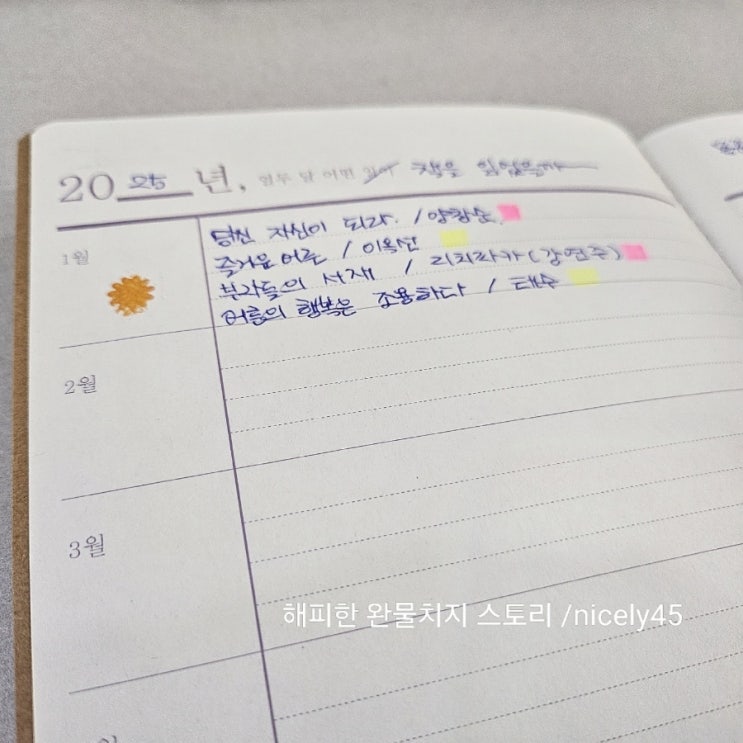 2025년, 열두 달 어떤 책을 읽었을까
1월
당신 자신이 되라. / 양창순
즐거운 어른 / 이옥선
부자들의 서재 / 리치파카(강연주)
어른의 행복은 조용하다 / 태수
2월
3월
해피한 완물치지 스토리 /nicely45